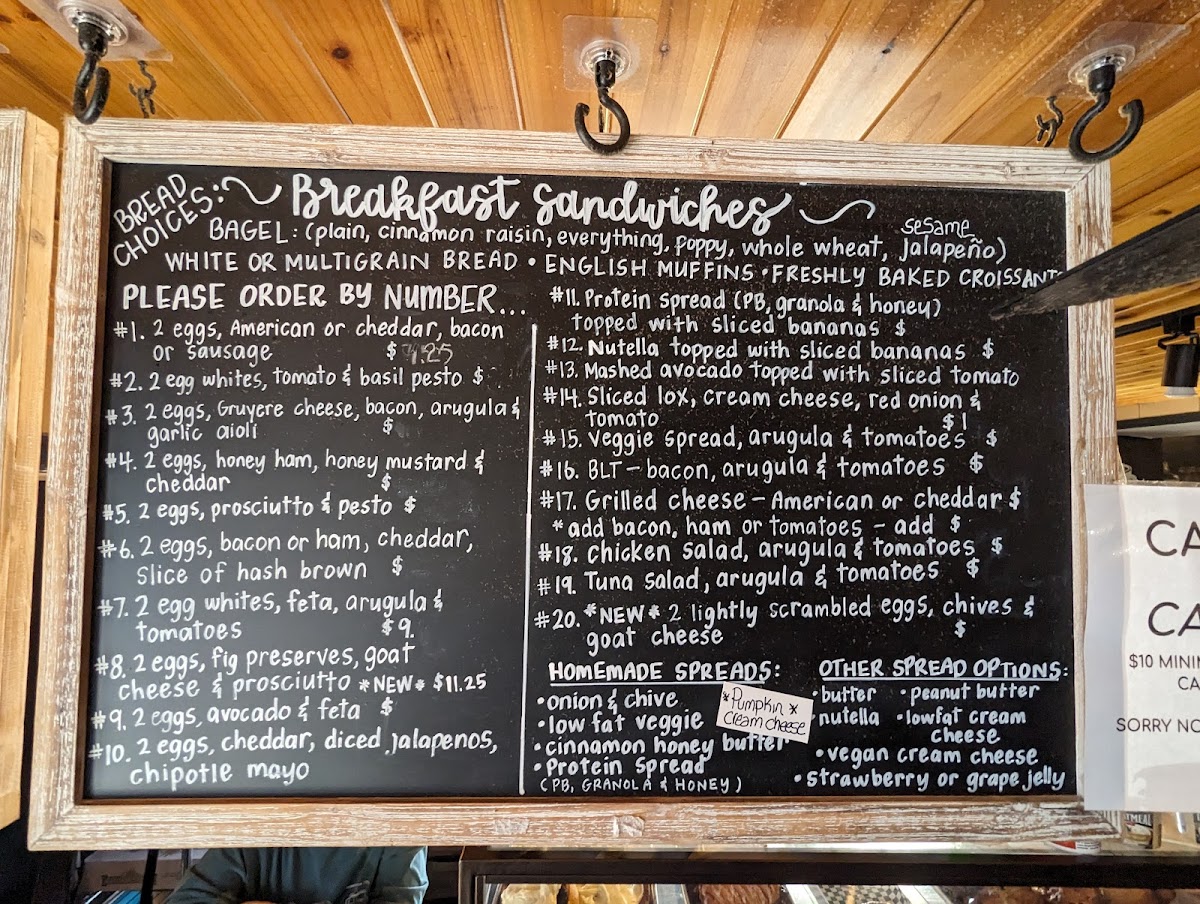 BREAD
CHOICES:
Breakfast Sandwiches
sesame
BAGEL: (plain, cinnamon raisin, everything, poppy, whole wheat, jalapeño)
WHITE OR MULTIGRAIN BREAD • ENGLISH MUFFINS • FRESHLY BAKED CROISSANT
PLEASE ORDER BY NUMBER...
#1. 2 eggs, American or cheddar, bacon
or sausage $
#2. 2 egg whites, tomato & basil pesto $
#3. 2 eggs, Gruyere cheese, bacon, arugula &
garlic aioli $
#4. 2 eggs, honey ham, honey mustard &
cheddar $
#5. 2 eggs, prosciutto & pesto $
#6. 2 eggs, bacon or ham, cheddar,
slice of hash brown $
#7. 2 egg whites, feta, arugula &
tomatoes $9.
#8. 2 eggs, fig preserves, goat
cheese & prosciutto *NEW* $11.25
#9. 2 eggs, avocado & feta $
#10. 2 eggs, cheddar, diced jalapenos,
chipotle mayo
#11. Protein spread (PB, granola & honey)
topped with sliced bananas $
#12. Nutella topped with sliced bananas $
#13. Mashed avocado topped with sliced tomato
#14. Sliced lox, cream cheese, red onion &
tomato $1
#15. Veggie spread, arugula & tomatoes $
#16. BLT - bacon, arugula & tomatoes $
#17. Grilled cheese - American or cheddar $
*add bacon, ham or tomatoes - add $
#18. Chicken salad, arugula & tomatoes $
#19. Tuna salad, arugula & tomatoes $
#20. *NEW* 2 lightly scrambled eggs, chives &
goat cheese $
HOMEMADE SPREADS:
•onion & chive
•low fat veggie
•cinnamon honey butter
•Protein spread
(PB, GRANOLA & HONEY)
*Pumpkin*
Cream cheese
OTHER SPREAD OPTIONS:
•butter •peanut butter
•nutella •lowfat cream
cheese
•vegan cream cheese
•strawberry or grape jelly
CA
CA
$10 MINI
CA
SORRY NO